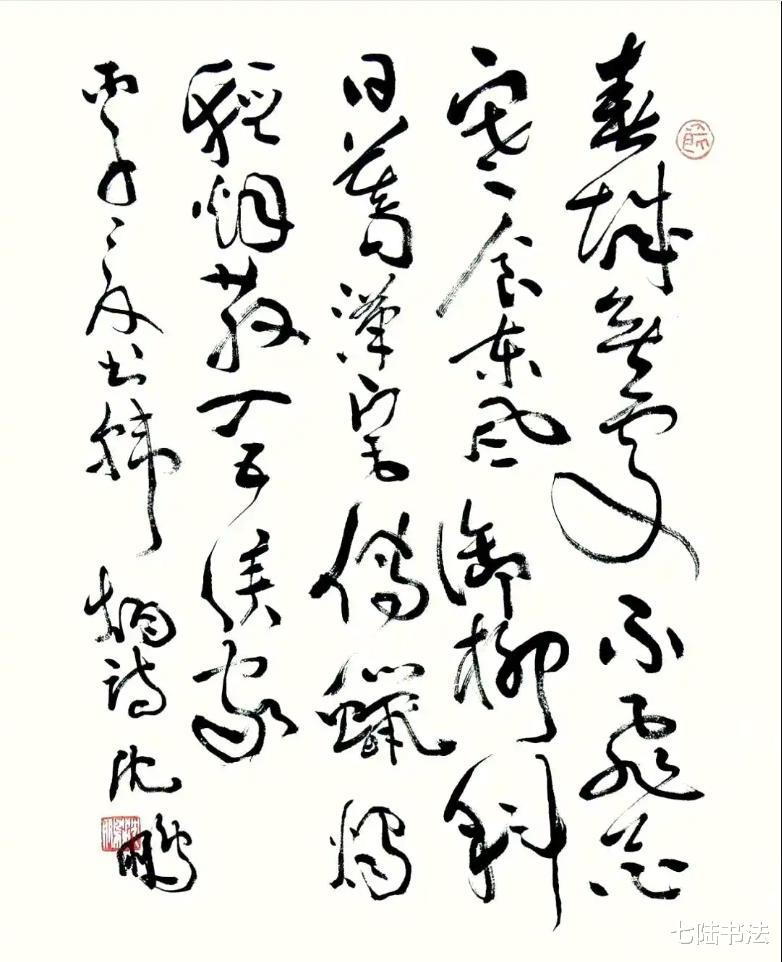 春城無處不飛花
寒食東風御柳斜
日暮漢宮傳蠟燭
輕烟散入五侯家
書韓翃詩 沈鵬
七陆书法